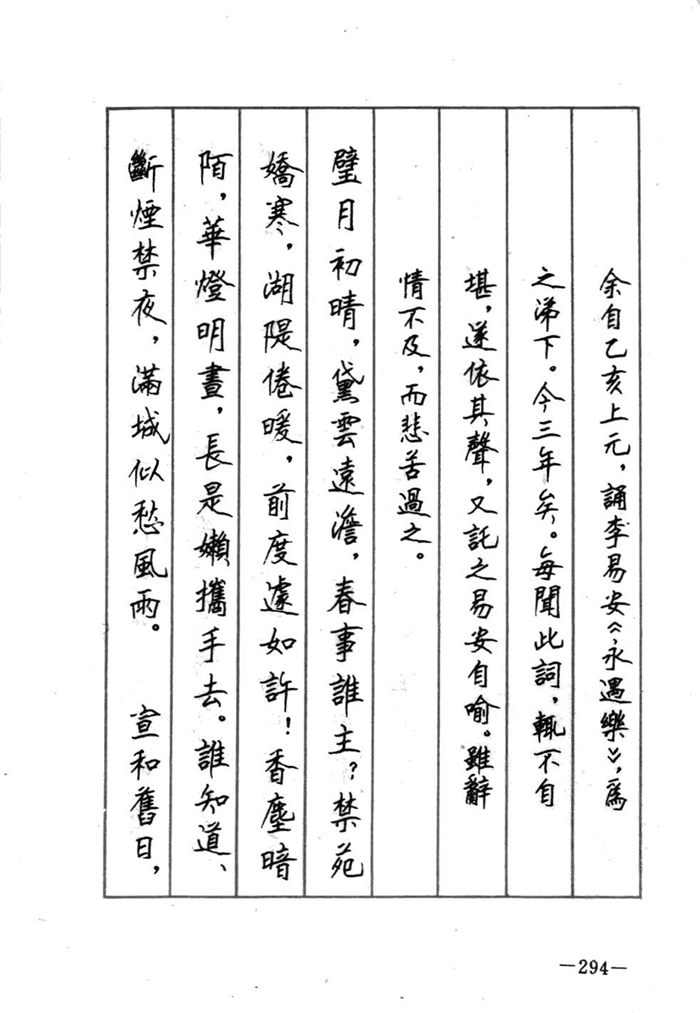 余自乙亥上元，誦李易安《永遇樂》，爲
之涕下。今三年矣。每聞此詞，輒不自
堪，遂依其聲，又託之易安自喻。雖辭
情不及，而悲苦過之。
璧月初晴，黛雲遠澹，春事誰主？禁苑
嬌寒，湖隄倦暖，前度遽如許！香塵暗
陌，華燈明晝，長是嬾攜手去。誰知道、
斷煙禁夜，滿城似愁風雨。　宣和舊日，
—294—